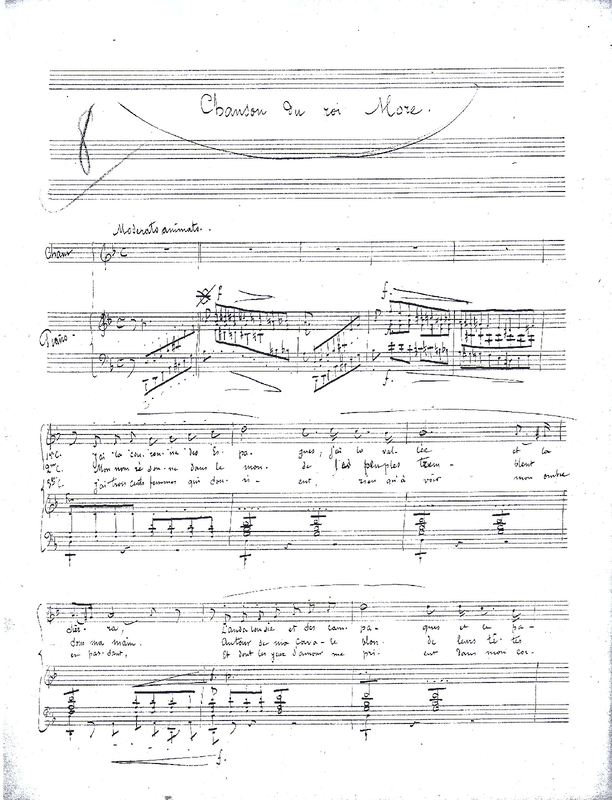 8
Chanson du roi More.
Moderato animato.
Chant
f. f.
Piano
f.
1er C. J'ai la cou-ron-ne des Es-pa-gnes, j'ai la val-lée et la
2me C. Mon nom ré-son-ne dans le mon-de les peuples trem-blent
3me C. J'ai trois cents femmes qui sou-ri-ent, rien qu'à voir mon ombre
L'anda-lou-sie et des cam-pa-gnes et en pa-
sous ma main. Autour de ma cava-le blon-de leurs tê-tes
en pas-sant, Et dont les yeux d'amour me pri-ent dans mon cor-
f.